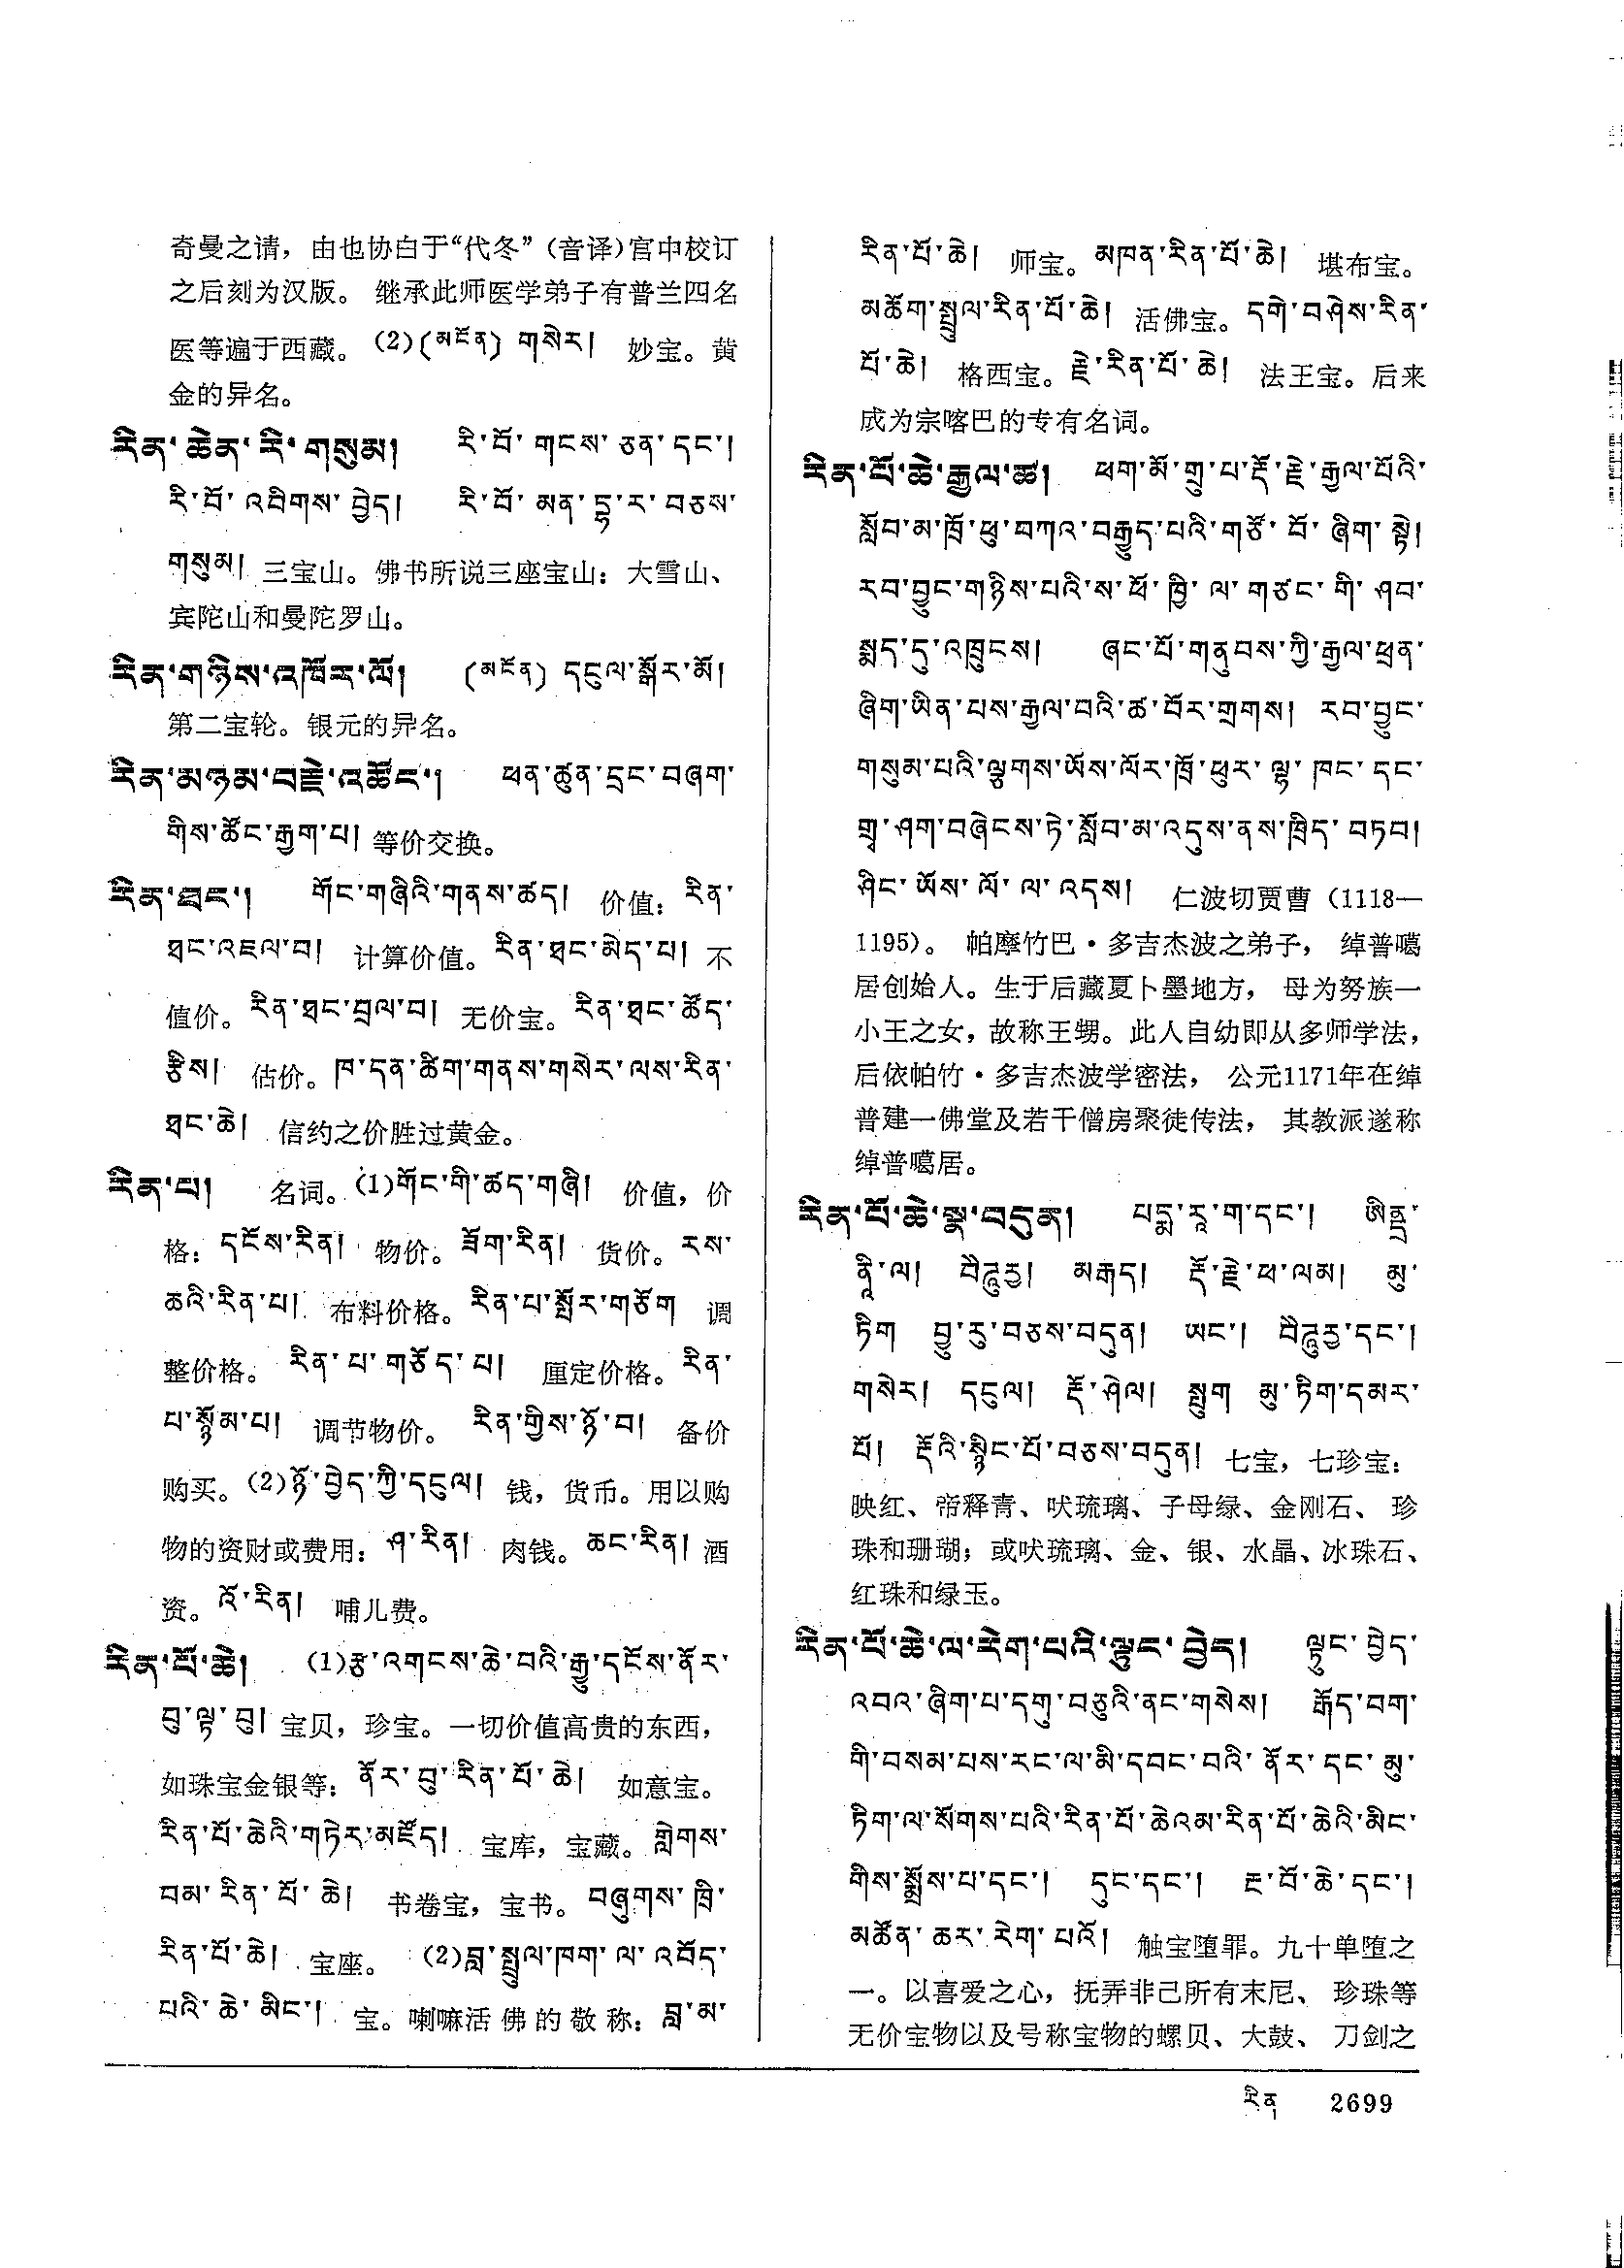 奇曼之请，由也协白于“代冬”（音译）宫中校订
之后刻为汉版。 继承此师医学弟子有普兰四名
医等遍于西藏。 (2)(མངོན) གསེར། 妙宝。黄
金的异名。
རིན་ཆེན་རི་གསུམ། རི་བོ་གངས་ཅན་དང་།
རི་བོ་འབིགས་བྱེད། རི་བོ་མན་དྷ་ར་བཅས་
གསུམ། 三宝山。佛书所说三座宝山：大雪山、
宾陀山和曼陀罗山。
རིན་གཉིས་འཁོར་ལོ། (མངོན) དངུལ་སྒོར་མོ།
第二宝轮。银元的异名。
རིན་མཉམ་བརྗེ་འཚོང་། ཕན་ཚུན་དྲང་བཞག་
གིས་ཚོང་རྒྱག་པ། 等价交换。
རིན་ཐང་། གོང་གཞིའི་གནས་ཚད། 价值：རིན་
ཐང་འཇལ་བ། 计算价值。རིན་ཐང་མེད་པ། 不
值价。རིན་ཐང་བྲལ་བ། 无价宝。རིན་ཐང་ཚོད་
རྩིས། 估价。ཁ་དན་ཚིག་གནས་གསེར་ལས་རིན་
ཐང་ཆེ། 信约之价胜过黄金。
རིན་པ། 名词。(1)གོང་གི་ཚད་གཞི། 价值，价
格：དངོས་རིན། 物价。ཟོག་རིན། 货价。རས་
ཆའི་རིན་པ། 布料价格。རིན་པ་སྤོར་གཙོག 调
整价格。རིན་པ་གཅོད་པ། 厘定价格。རིན་
པ་སྙོམ་པ། 调节物价。 རིན་གྱིས་ཉོ་བ། 备价
购买。(2)ཉོ་བྱེད་ཀྱི་དངུལ། 钱，货币。用以购
物的资财或费用：ཤ་རིན། 肉钱。ཆང་རིན། 酒
资。འོ་རིན། 哺儿费。
རིན་པོ་ཆེ། (1)རྩ་འགངས་ཆེ་བའི་རྒྱུ་དངོས་ནོར་
བུ་ལྟ་བུ། 宝贝，珍宝。一切价值高贵的东西，
如珠宝金银等：ནོར་བུ་རིན་པོ་ཆེ། 如意宝。
རིན་པོ་ཆེའི་གཏེར་མཛོད། 宝库，宝藏。གླེགས་
བམ་རིན་པོ་ཆེ། 书卷宝，宝书。བཞུགས་ཁྲི་
རིན་པོ་ཆེ། 宝座。 (2)བླ་སྤྲུལ་ཁག་ལ་འབོད་
པའི་ཆེ་མིང་། 宝。喇嘛活佛的敬称：བླ་མ་
རིན་པོ་ཆེ། 师宝。མཁན་རིན་པོ་ཆེ། 堪布宝。
མཆོག་སྤྲུལ་རིན་པོ་ཆེ། 活佛宝。དགེ་བཤེས་རིན་
པོ་ཆེ། 格西宝。རྗེ་རིན་པོ་ཆེ། 法王宝。后来
成为宗喀巴的专有名词。
རིན་པོ་ཆེ་རྒྱལ་ཚ། ཕག་མོ་གྲུ་པ་རྡོ་རྗེ་རྒྱལ་པོའི་
སློབ་མ་ཁྲོ་ཕུ་བཀའ་བརྒྱུད་པའི་གཙོ་བོ་ཞིག་སྟེ།
རབ་བྱུང་གཉིས་པའི་ས་ཕོ་ཁྱི་ལ་གཙང་གི་ཤབ་
སྨད་དུ་འཁྲུངས། ཞང་པོ་གནུབས་ཀྱི་རྒྱལ་ཕྲན་
ཞིག་ཡིན་པས་རྒྱལ་བའི་ཚ་བོར་གྲགས། རབ་བྱུང་
གསུམ་པའི་ལྕགས་ཡོས་ལོར་ཁྲོ་ཕུར་ལྷ་ཁང་དང་
གྲྭ་ཤག་བཞེངས་ཏེ་སློབ་མ་འདུས་ནས་ཁྲིད་བཏབ།
ཤིང་ཡོས་ལོ་ལ་འདས། 仁波切贾曹（1118—
1195）。 帕摩竹巴·多吉杰波之弟子， 绰普噶
居创始人。生于后藏夏卜墨地方， 母为努族一
小王之女，故称王甥。此人自幼即从多师学法，
后依帕竹·多吉杰波学密法， 公元1171年在绰
普建一佛堂及若干僧房聚徒传法， 其教派遂称
绰普噶居。
རིན་པོ་ཆེ་སྣ་བདུན། པདྨ་རཱ་ག་དང་། ཨིནྡྲ་
ནཱི་ལ། བཻཌཱུརྱ། མརྒད། རྡོ་རྗེ་ཕ་ལམ། མུ་
ཏིག བྱུ་རུ་བཅས་བདུན། ཡང་། བཻཌཱུརྱ་དང་།
གསེར། དངུལ། རྡོ་ཤེལ། སྤུག མུ་ཏིག་དམར་
པོ། རྡོའི་སྙིང་པོ་བཅས་བདུན། 七宝，七珍宝：
映红、帝释青、吠琉璃、子母绿、金刚石、 珍
珠和珊瑚；或吠琉璃、金、银、水晶、冰珠石、
红珠和绿玉。
རིན་པོ་ཆེ་ལ་རེག་པའི་ལྟུང་བྱེད། ལྟུང་བྱེད་
འབའ་ཞིག་པ་དགུ་བཅུའི་ནང་གསེས། རྒོད་བག་
གི་བསམ་པས་རང་ལ་མི་དབང་བའི་ནོར་དང་མུ་
ཏིག་ལ་སོགས་པའི་རིན་པོ་ཆེའམ་རིན་པོ་ཆེའི་མིང་
གིས་སྨོས་པ་དང་། དུང་དང་། རྔ་བོ་ཆེ་དང་།
མཚོན་ཆར་རེག་པའོ། 触宝堕罪。九十单堕之
一。以喜爱之心，抚弄非己所有末尼、 珍珠等
无价宝物以及号称宝物的螺贝、大鼓、 刀剑之
རིན 2699